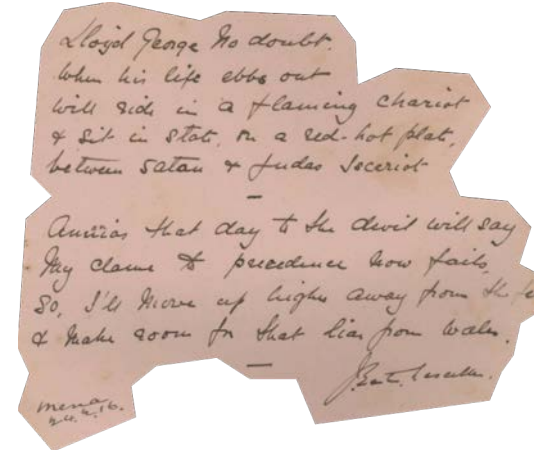 Lloyd George No doubt.
When his life ebbs out
will ride in a flaming chariot
& sit in state, on a red-hot plate,
between Satan & Judas Isceriot
Ananias that day to the devil will say
My claim to precedence now fails,
So, I'll move up higher away from the
& make room for that liar from Wales.
Mena